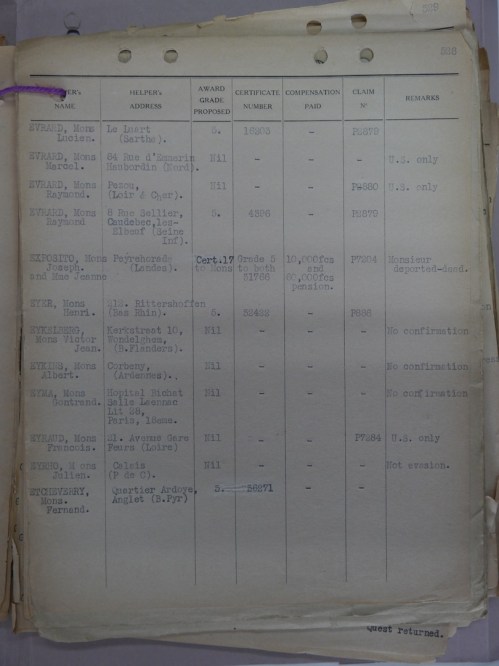 529
528
HELPER's NAME HELPER's ADDRESS AWARD GRADE PROPOSED CERTIFICATE NUMBER COMPENSATION PAID CLAIM Nº REMARKS
EVRARD, Mons Le Luart 5. - 
Lucien. (Sarthe).
EVRARD, Mons Nil - - - U.S. only
Marcel. Haubordin (Nord).
EVRARD, Mons Nil - - U.S. only
Raymond. (Loir & Cher).
EVRARD, Mons 8 Rue Sellier, 5. 4326 - 
Raymond Caudebec,les-
Elbeuf (Seine
Inf).
EXPOSITO, Mons Peyrehorade Cert.17 Grade 5 10,000fcs P7204 Monsieur
Joseph. (Landes). to Mons to both and deported-dead.
and Mme Jeanne 51766 60,000fcs
pension.
Mons Rittershoffen
Henri. (Bas Rhin). 5. -
Kerkstraat 10, Nil - - - No confirmation
Mons Victor Wondelghem,
Jean. (B.Flanders).
EYKINS, Mons Corbeny, Nil - - - No confirmation
Albert. (Ardennes).
EYMA, Mons Hopital Bichat Nil - - - No confirmation
Gontrand. Salle
Lit 28,
Paris, 18eme.
EYRAUD, Mons 21. Avenue Gare Nil - - U.S. only
Francois. Feurs (Loire)
Mons Calais Nil - - - Not evasion.
Julien. (P de C).
ETCHEVERRY, Quartier Ardoye, 5. 38271 - -
Mons. Anglet (B.Pyr)
Fernand.
Quest returned.